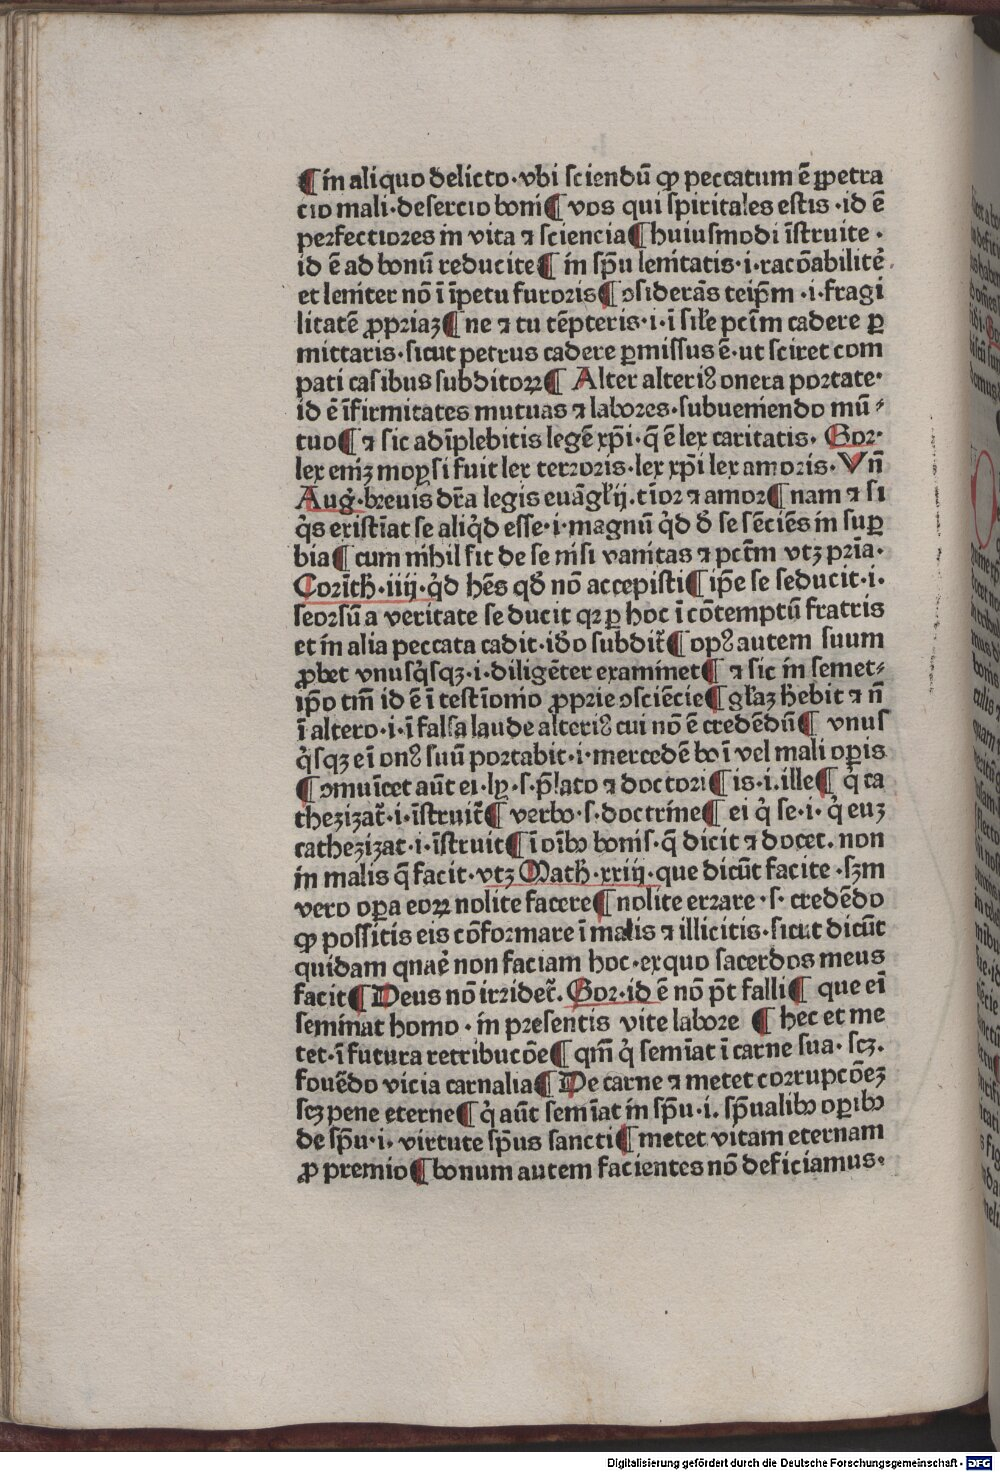 ¶ in aliquo delicto·vbi sciendū ꝙ peccatum ē ꝑpetra
cio mali·desercio boni ¶ vos qui spiritales estis·id ē
perfectiores in vita ⁊ sciencia ¶ huiusmodi īstruite·
id ē ad bonū reducite ¶ in sp̄u lenitatis·i·racōabilit̾
et leniter nō ī īpetu furoris ¶ ↄsiderās teip̄m·i·fragi
litatē ꝓpriaꝫ ¶ ne ⁊ tu tēpteris·i·ī sil̄e pct̄m cadere ꝑ
mittaris·sicut petrus cadere ꝑmissus ē·ut sciret com
pati casibus subditoꝝ ¶ Alter alteriꝰ onera portate·
id ē īfirmitates mutuas ⁊ labores·subueniendo mū⸗
tuo ¶ ⁊ sic adīplebitis legē xp̄i·q̄ ē lex caritatis. Gor·
lex enīꝫ moẏsi fuit lex terroris·lex xp̄i lex amoris. Vn̄
Aug̾·breuis dr̄a legis euāgl̄ij.tīor ⁊ amor ¶ nam ⁊ si
q̇s existīat se aliq̇d esse·i·magnū q̇d đ se sēciēs in suꝑ
bia ¶ cum nihil sit de se nisi vanitas ⁊ pct̄m vtꝫ pr̄ia·
Corīth·iiij·q̇d hēs qđ nō accepisti ¶ ip̄e se seducit·i·
seorsū a veritate se ducit qꝛ ꝑ hoc ī cōtemptū fratris
et in alia peccata cadit·iđo subdit̄ ¶ opꝰ autem suum
ꝓbet vnusq̇sqꝫ·i·diligēter examinet ¶ ⁊ sic in semet⸗
ip̄o tm̄ id ē ī testīonio ꝓprie ↄsciēcie ¶ gl̄aꝫ hēbit ⁊ n̄
ī altero·i·ī falsa laude alteriꝰ cui nō ē credēdū ¶ vnus
q̇sqꝫ eī onꝰ suū portabit·i·mercedē boī vel mali oꝑis
¶ ↄmuīcet aūt ei·lẏ·s·p̄lato ⁊ doctori ¶ is.i.ille ¶ q̇ ca
thezizat̄·i·īstruit̄ ¶ verbo·s·doctrine ¶ ei q̇ se·i·q̇ euꝫ
cathezizat·i·īstruit ¶ ī oībꝫ bonis·q̄ dicit ⁊ docet. non
in malis q̄ facit·vtꝫ Math·xxiij·que dicūt facite·sꝫm
vero oꝑa eoꝝ nolite facere ¶ nolite errare·s·credēdo
ꝙ possitis eis cōformare ī malis ⁊ illicitis·sicut dicūt
quidam qnae̾ non faciam hoc·exquo sacerdos meus
facit ¶ Deus nō irridet̄. Gor·id ē nō p̄t falli ¶ que eī
seminat homo·in presentis vite labore ¶ hec et me
tet·ī futura retribucōe ¶ qm̄ q̇ semīat ī carne sua·scꝫ.
fouēdo vicia carnalia ¶ De carne ⁊ metet corrupcōeꝫ
scꝫ pene eterne ¶ q̇ aūt semīat in sp̄u·i. sp̄ualibꝫ oꝑibꝫ
de sp̄u·i. virtute sp̄us sancti ¶ metet vitam eternam
ꝓ premio ¶ bonum autem facientes nō deficiamus·
Digitalisierung gefördert durch die Deutsche Forschungsgemeinschaft - DFG